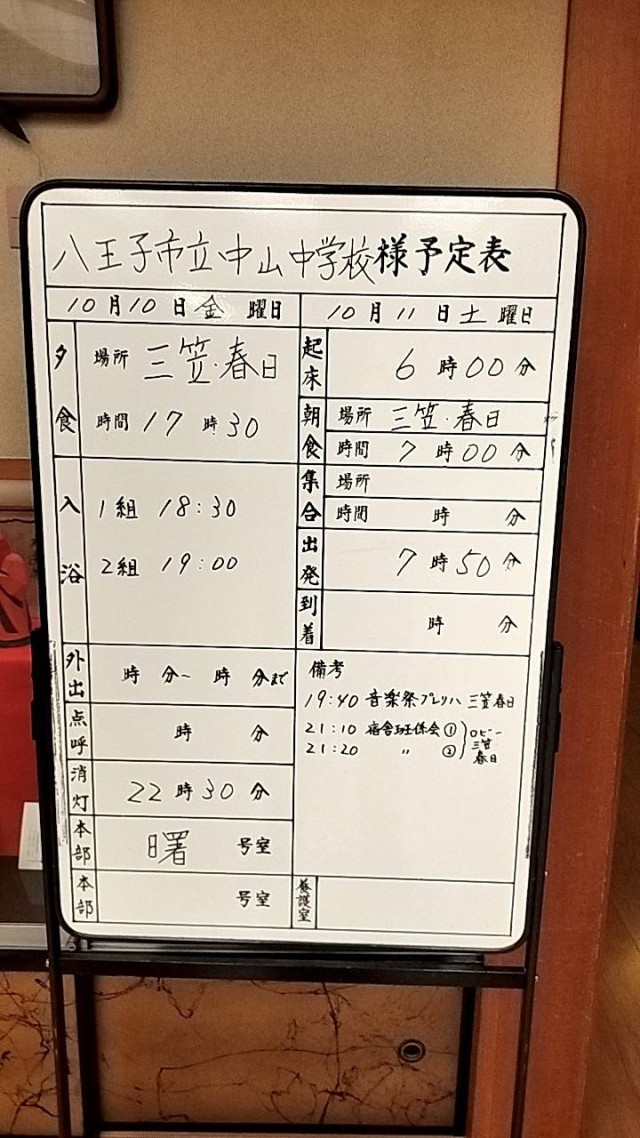 八王子市立中山中学校様予定表
10月10日金曜日
10月11日土曜日
夕食
場所 三笠・春日
時間 17時30
入浴
1組 18:30
2組 19:00
外出 時 分~ 時 分まで
点呼 時 分
消灯 22時30分
本部 曙 号室
本部 号室
起床 6時00分
朝食
場所 三笠・春日
時間 7時00分
集合
場所
時間 時 分
出発 7時50分
到着 時 分
備考
19:40 音楽祭プレリハ 三笠春日
21:10 宿舎班係会①
21:20 〃 ②
ロビー
三笠
春日
養護室